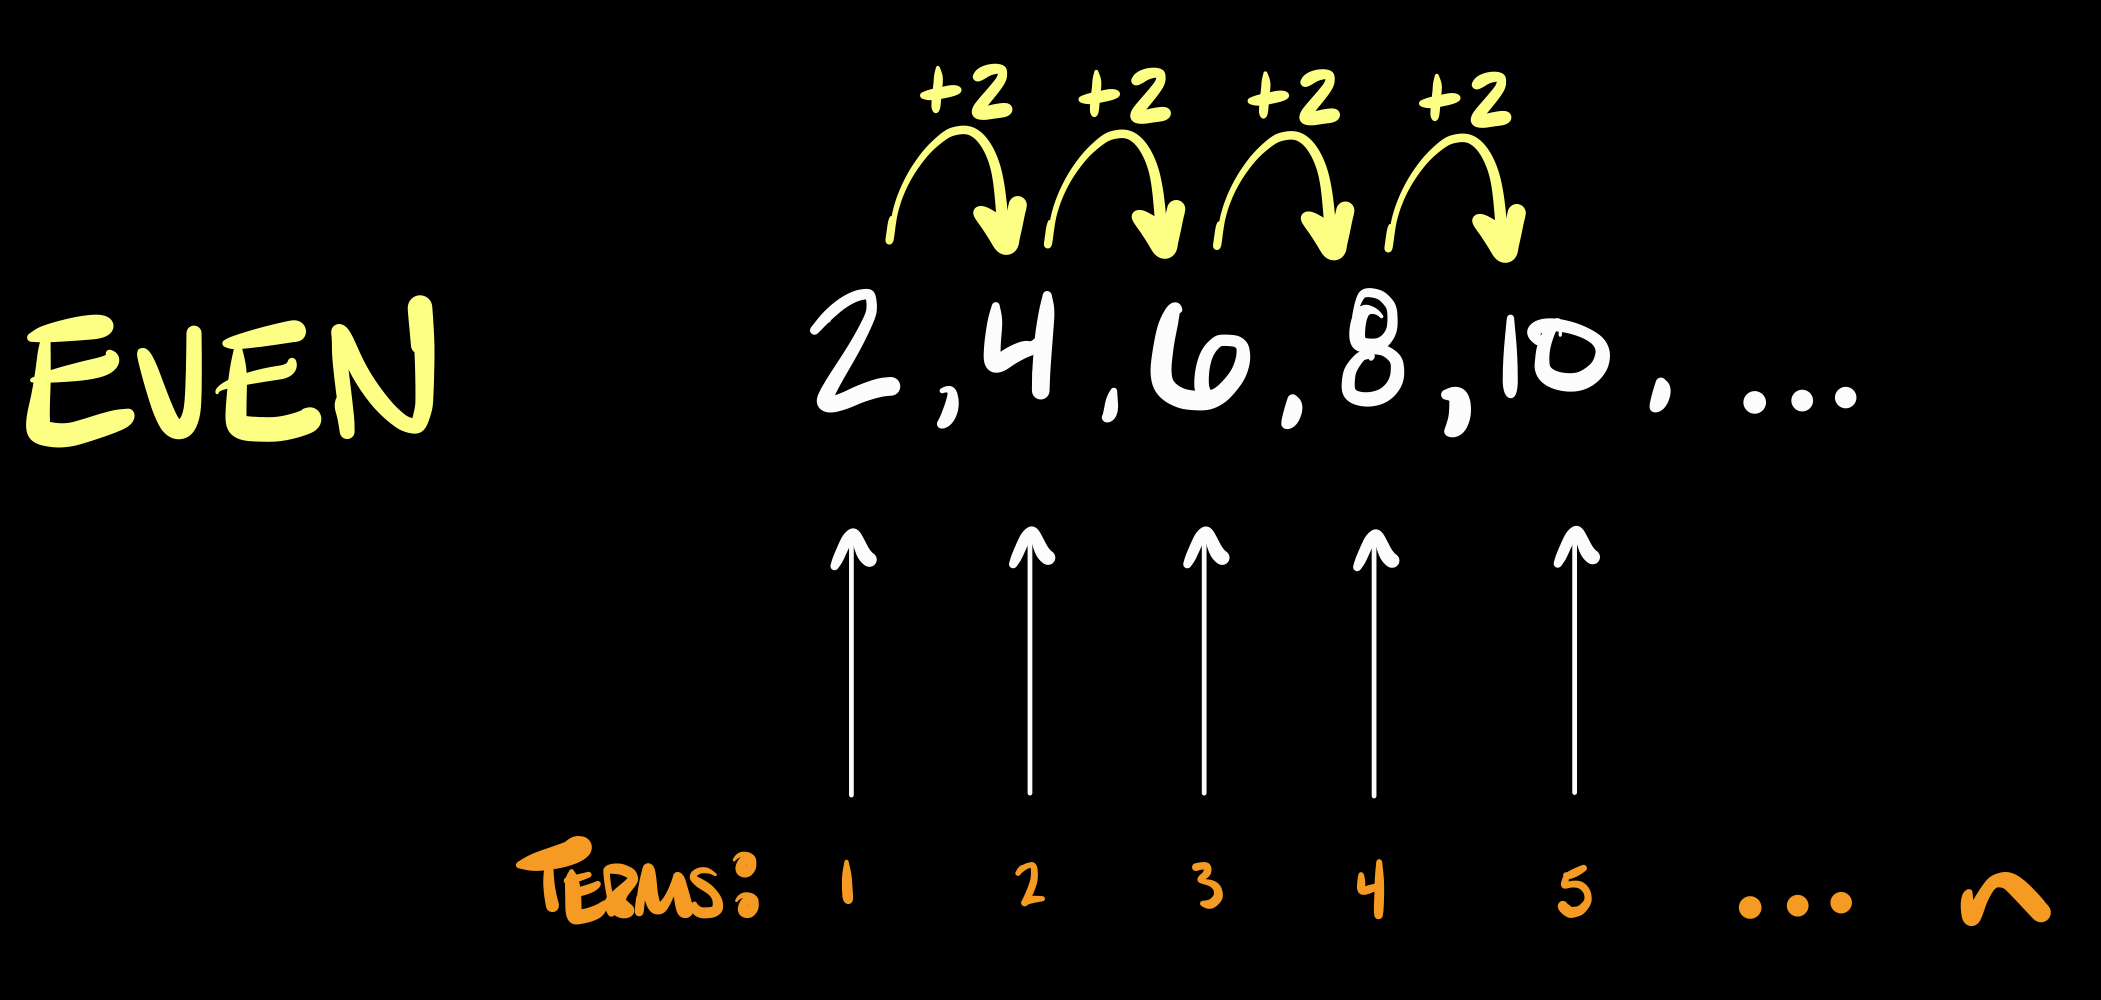 +2 +2 +2 +2
EVEN 2, 4, 6, 8, 10, ...
TERMS: 1 2 3 4 5 ... n